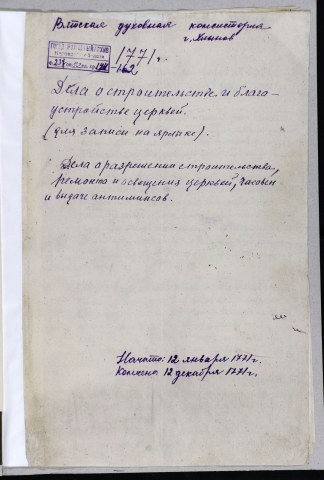 Вятская духовная консистория
г. Хлынов
1771 г.
Дела о строительстве и благо-
устройстве церквей.
(для записи на ярлыке).
Дела о разрешении строительства,
ремонта и освящения церквей, часовен
и выдаче антиминсов.
Начато: 12 января 1771 г.
Кончено: 12 декабря 1771 г.